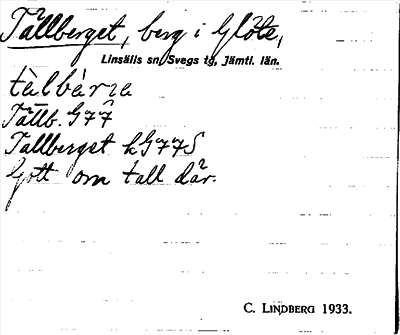 Tällberget, berg i Glöte,
Linsälls sn, Svegs tg, Jämtl. län.
tàlbǽrʒa
Tällb. G77
Tallberget k G77S
Gott om tall där.
C. LINDBERG 1933.